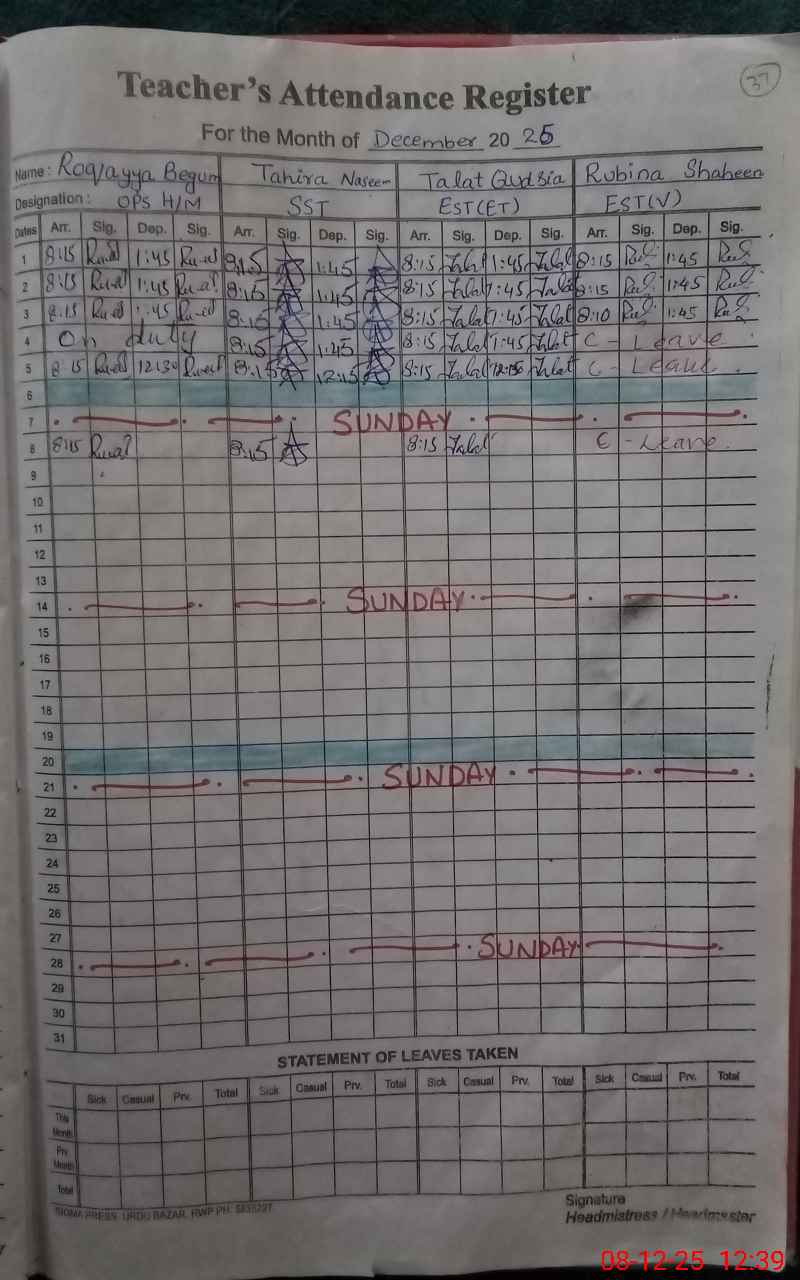 37
Teacher's Attendance Register
For the Month of December 20 25
Name: Roqayya Begum Tahira Naseem Talat Qudsia Rubina Shaheen
Designation: OPS H/M SST EST(ET) EST(V)
Dates Arr. Sig. Dep. Sig. Arr. Sig. Dep. Sig. Arr. Sig. Dep. Sig. Arr. Sig. Dep. Sig.
1 8:15 1:45 8:15 1:45 8:15 Talat 1:45 Talat 8:15 1:45
2 8:15 1:45 8:15 1:45 8:15 Talat 1:45 Talat 8:15 1:45
3 8:15 1:45 8:15 1:45 8:15 Talat 1:45 Talat 8:10 1:45
4 On duty 8:15 1:45 8:15 Talat 1:45 Talat C - Leave
5 8:15 12:30 8:15 12:15 8:15 Talat Talat C - Leave
6
7 SUNDAY
8 8:15 8:15 8:15 Talat C - Leave
9
10
11
12
13
14 SUNDAY
15
16
17
18
19
20
21 SUNDAY
22
23
24
25
26
27
28 SUNDAY
29
30
31
STATEMENT OF LEAVES TAKEN
Sick Casual Prv. Total Sick Casual Prv. Total Sick Casual Prv. Total Sick Casual Prv. Total
This Month
Prv. Month
Total
SIGMA PRESS URDU BAZAR, RWP PH:
Signature
Headmistress / Headmaster
08-12-25 12:39